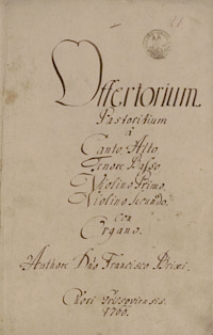 Offertorium
Pastoritium
à
Canto, Alto,
Tenore Basso,
Violino Primo,
Violino Secundo.
con
Organo.
Authore Dno Francisco Brixi.
Chori